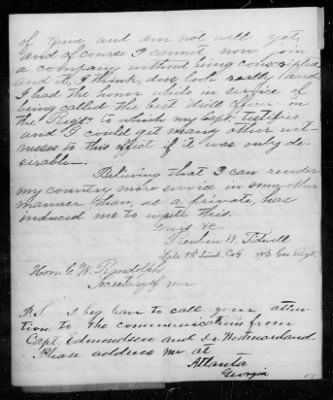 of June and am not well yet,
and of course I cannot now join
a company without being conscripted
and it, I think, does look really hard.
I had the honor while in service of
being called the best drill officer in
the Regt. to which my Capt. testifies
and I could get many other wit-
nesses to this effect if it was only de-
sirable.
Believing that I can render
my country more service in some other
manner than, as a private, has
induced me to write this.
Reuben W. Tidwell
Late
Hon. G. W. Randolph
Secretary of war
P.S. I beg leave to call your atten-
tion to the communications from
Capt. Edmondson and
Please address me at
Atlanta
Georgia